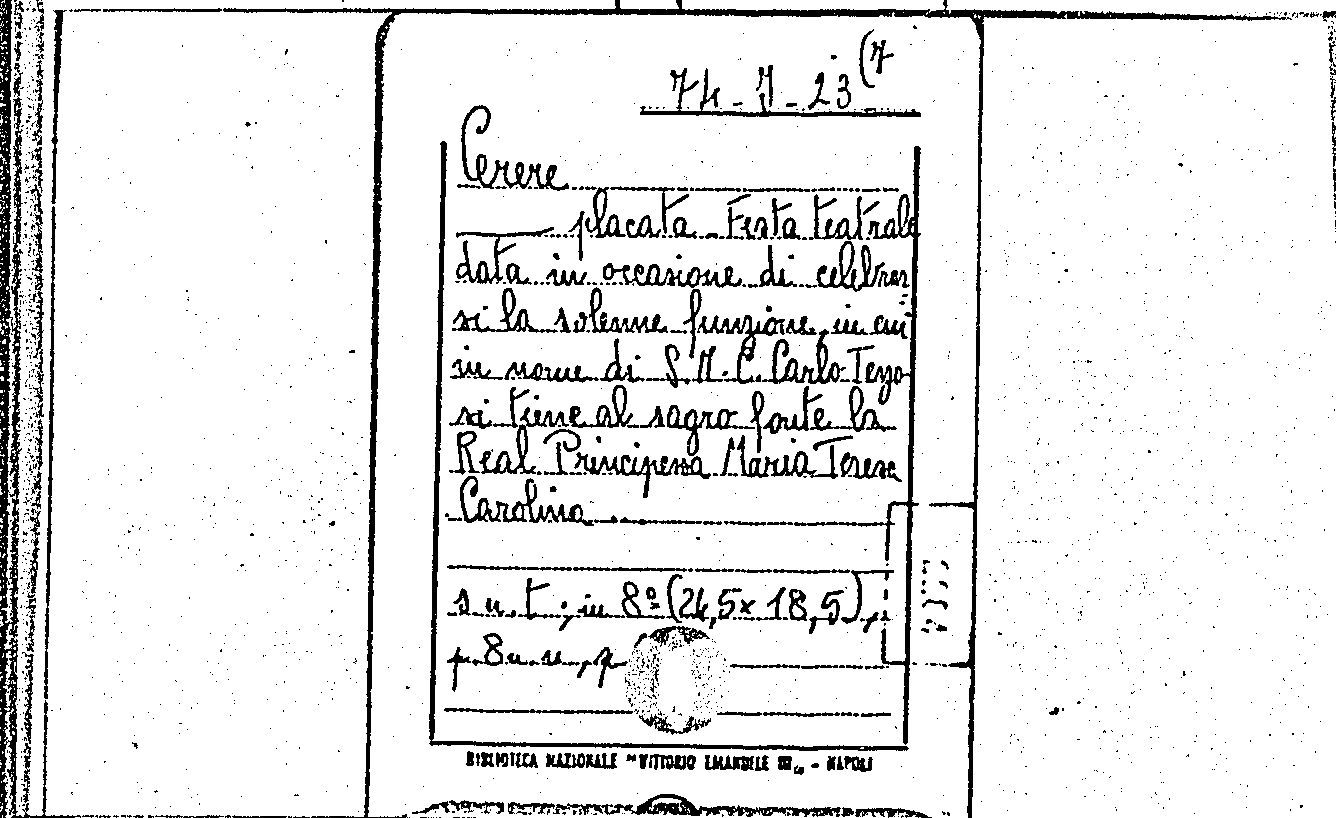 74-J-23(7
Cerere
placata - Festa teatrale
data in occasione di celebrar
si la solenne funzione, in cui
in nome di S. M. C. Carlo Terzo
si tiene al sagro fonte la
Real Principessa Maria Teresa
Carolina ...
s. n. t.; in 8º (24,5x18,5),
p. 8 n. n., p
BIBLIOTECA NAZIONALE "VITTORIO EMANUELE III" - NAPOLI